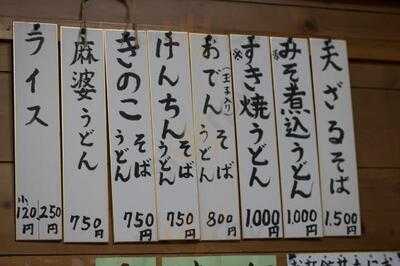 天ざるそば
1.500円
みそ煮込うどん
1.000円
すき焼うどん
1.000円
おでん(玉子入り)
そば
うどん
800円
けんちん
そば
うどん
750円
きのこ
そば
うどん
750円
麻婆うどん
750円
ライス
小120円
250円